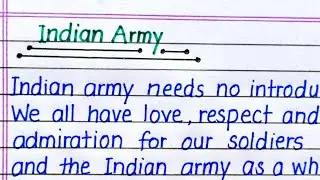 Indian Army
Indian army needs no introdu
We all have love, respect and
admiration for our soldiers
and the Indian army as a wh